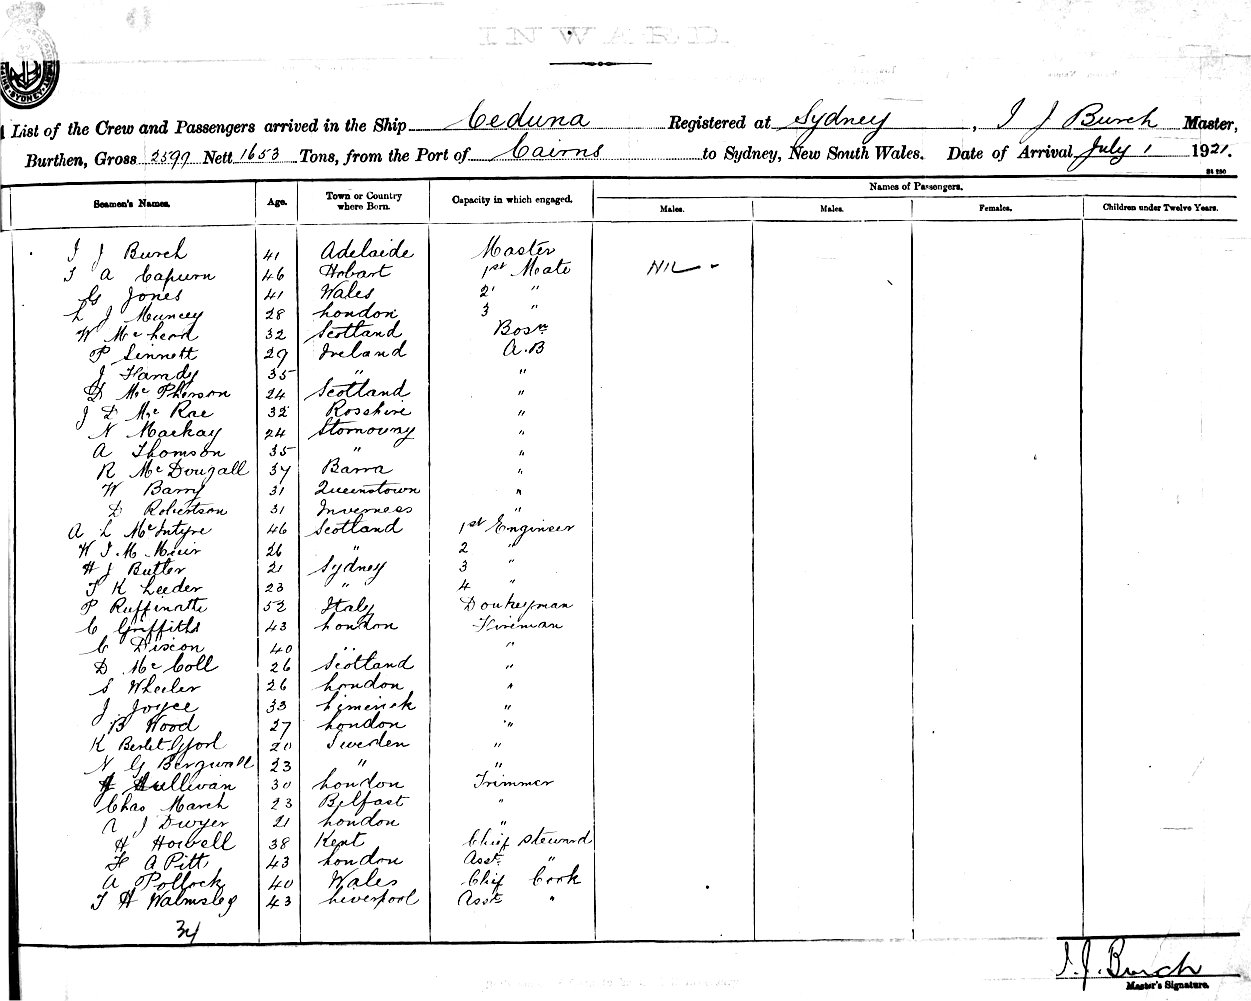 INWARD.
List of the Crew and Passengers arrived in the Ship Ceduna Registered at Sydney, J J Burch Master,
Burthen, Gross 2599 Nett 1653 Tons, from the Port of Cairns to Sydney, New South Wales. Date of Arrival July 1 1921.
Seamen's Names. Age. Town or Country where Born. Capacity in which engaged. Names of Passengers.
Males. Males. Females. Children under Twelve Years.
J J Burch 41 Adelaide Master
T A Capurn 46 Hobart 1st Mate NIL
G Jones 41 Wales 2 "
L J Muncey 28 London 3 "
W McLeod 32 Scotland Bosn
P Sinnett 29 Ireland A.B
J Hardy 35 " "
D McPherson 24 Scotland "
J D McRae 32 Rosshire "
N Mackay 24 "
A Thomson 35 " "
R McDougall 37 Barra "
W Barry 31 Queenstown "
D Robertson 31 Inverness "
A L McIntyre 46 Scotland 1st Engineer
W J M Muir 26 " 2 "
H J Butler 21 Sydney 3 "
T K Leeder 23 " 4 "
P 52 Italy Donkeyman
C Griffiths 43 London Fireman
C Dixon 40 " "
D McColl 26 Scotland "
S Wheeler 26 London "
J Joyce 33 Limerick "
B Wood 27 London "
K 20 Sweden "
N G Bergwall 23 " "
Sullivan 30 London Trimmer
Chas March 23 Belfast "
J Dwyer 21 London "
H Howell 38 Kent Chief Steward
A Pitt 43 London Asst "
A Pollock 40 Wales Chief Cook
T H Walmsley 43 Liverpool Asst "
34
J. J. Burch
Master's Signature.